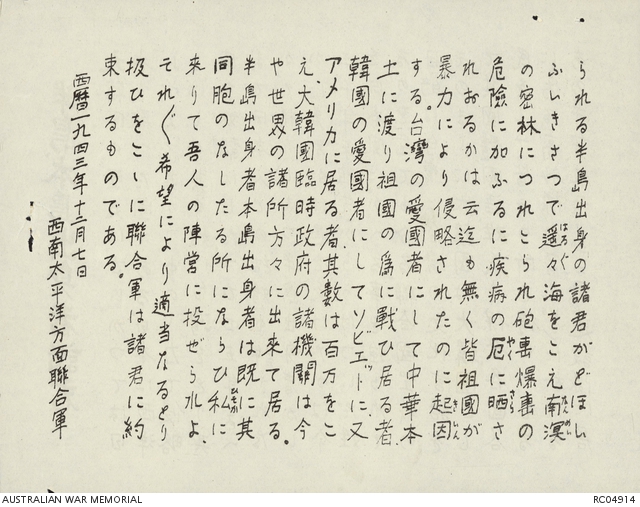 られる半島出身の諸君がどほい
ふいきさつで遥々海をこえ南溟
の密林につれとられ砲轟爆轟の
危險に加ふるに疾病の厄に晒さ
れおるかは云迄も無く皆祖國が
暴力により侵略されたのに起因
する。台灣の愛國者にして中華本
土に渡り祖國の為に戰ひ居る者、
韓國の愛國者にしてソビエットに、又
アメリカに居る者其數は百万をこ
え、大韓國臨時政府の諸機關は今
や世界の諸所方々に出來て居る。
半島出身者本島出身者は既に其
同胞のなしたる所にならひ私に
來りて吾人の陣営に投ぜられよ、
それ〲希望により適当なるとり
扱ひをこゝに聯合軍は諸君に約
束するものである。
西暦一九四三年十二月七日
西南太平洋方面聯合軍
AUSTRALIAN WAR MEMORIAL
RC04914